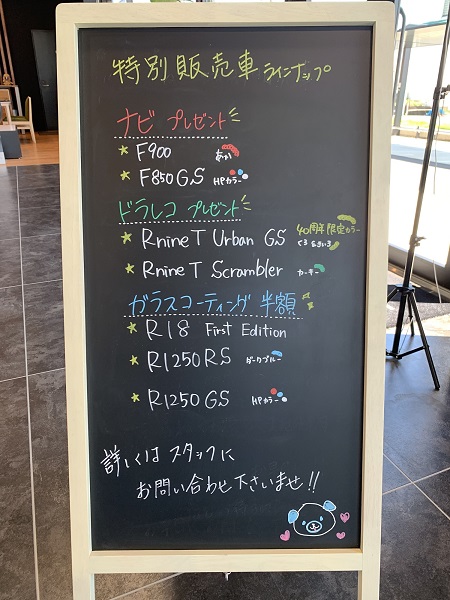 特別販売車ラインナップ
ナビ プレゼント
★ F900 あか
★ F850GS HPカラー
ドラレコ プレゼント
★ RnineT Urban GS 40周年限定カラー
くろ&きいろ
★ RnineT Scrambler カーキー
ガラスコーティング 半額
★ R18 First Edition
★ R1250RS ダークブルー
★ R1250GS HPカラー
詳しくは スタッフに
お問い合わせ下さいませ!!